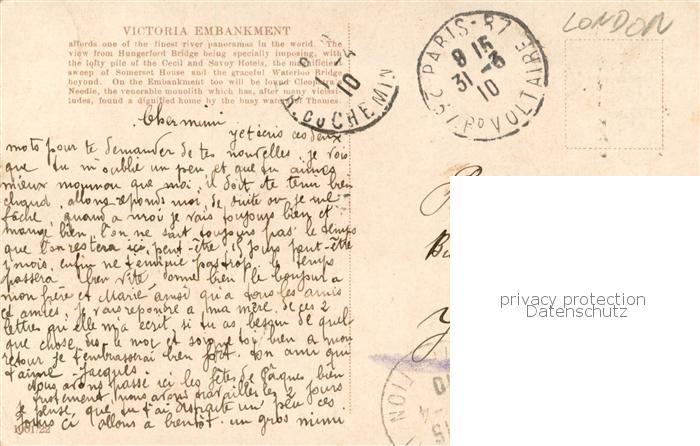 VICTORIA EMBANKMENT
affords one of the finest river panoramas in the world. The
view from Hungerford Bridge being specially imposing, with
the lofty pile of the Cecil and Savoy Hotels, the magnificent
sweep of Somerset House and the graceful Waterloo Bridge
beyond. On the Embankment too will be found Cleopatra's
Needle, the venerable monolith which has, after many vicissi-
tudes, found a dignified home by the busy water of Thames.
LONDON
PARIS-87
8 15
31 -3
10
25, Bd VOLTAIRE
10
R. DU CHEMIN
Cher mimi
je t'écris ces deux
mots pour te demander de tes nouvelles. je vois
que tu m'oublie un peu et que tu aimes
mieux mounou que moi, il doit te tenir bien
chaud, allons réponds moi, de suite ou je me
fâche, quand a moi je vais toujours bien et
mange bien, l'on ne sait toujours pas le temps
que l'on restera ici, peut-être 15 jours peut-être
2 mois, enfin ne t'ennuie pas trop, le temps
passera bien vite donne bien le bonjour a
mon frère et Marie ainsi qu'a tous les amis
et amies, je vais repondre a ma mère de ces 2
lettres qu'elle m'a écrit, si tu as besoin de quel
que chose, dis le moi et soigne toi bien a mon
retour je t'embrasserai bien fort. ton ami qui
t'aime - Jacques.
Nous avons passé ici les fêtes de Pâques bien
tristement, nous avons travaillés les 2 jours
je pense, que tu t'ai un peu ces
jours ci allons a bientôt. un gros mimi
privacy protection
Datenschutz